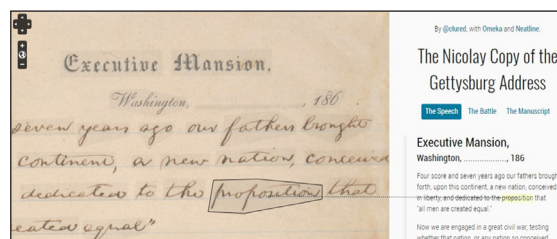 Executive Mansion,
Washington, , 186
seven years ago our fathers brought
continent, a new nation, conceived
dedicated to the proposition that
eated equal"
By @clured, with Omeka and Neatline.
The Nicolay Copy of the
Gettysburg Address
The Speech The Battle The Manuscript
Executive Mansion,
Washington, ................., 186
Four score and seven years ago our fathers brough
forth, upon this continent, a new nation, conceived
in liberty, and dedicated to the proposition that
"all men are created equal."
Now we are engaged in a great civil war, testing
whether that nation, or any nation so conceived,